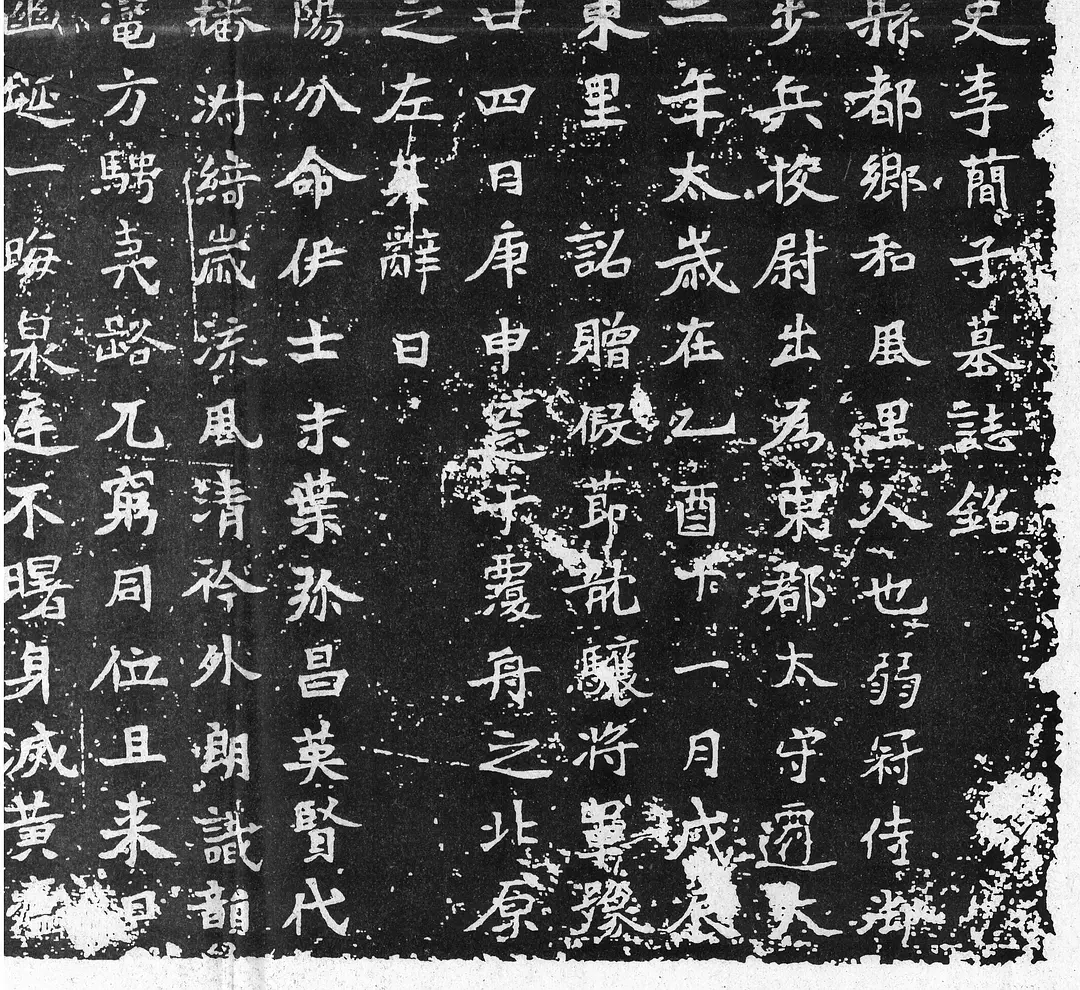 史李簡子墓誌銘
縣都鄉和風里人也弱冠侍御
步兵挍尉出為東郡太守遷大
二年太歲在乙酉十一月戊辰
東里詔贈假節龍驤將軍豫
廿四日庚申窆于覆舟之北原
之左其辭曰
陽分命伊士末葉弥昌英賢代
播 綺歲流風清衿外朗識韻
方騁堯路兀窮同位且来日
誕一晦泉遲不曙身滅黃